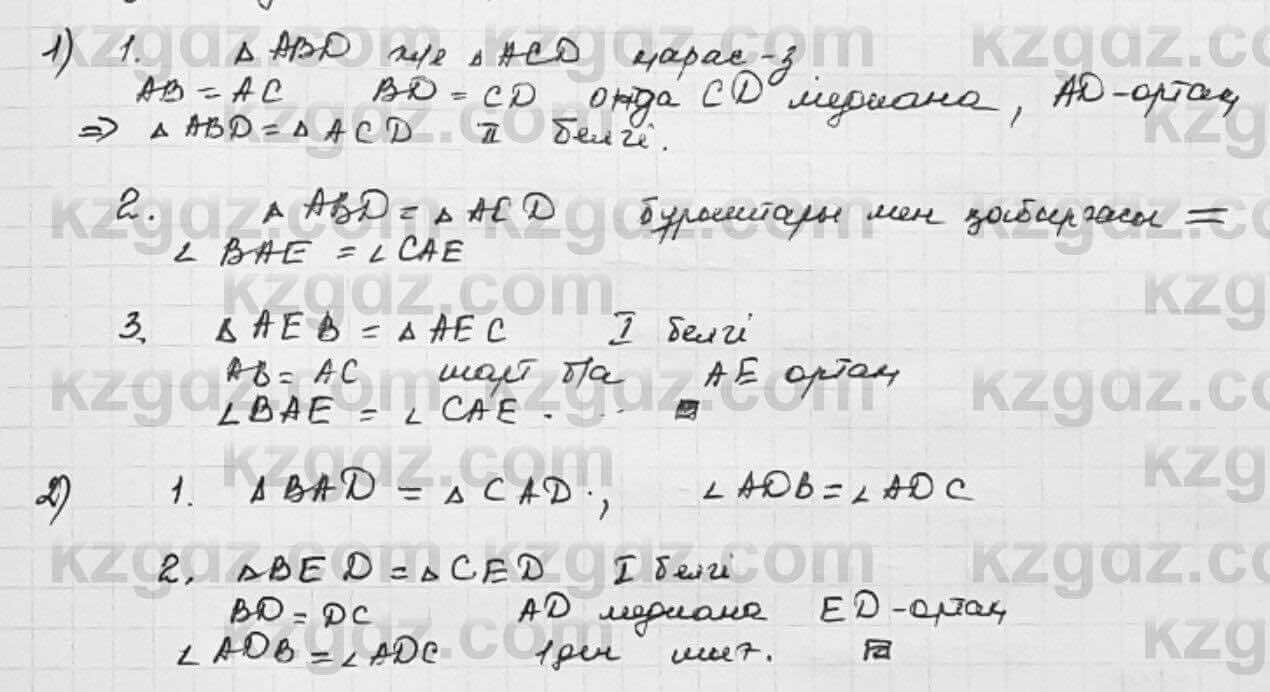 1) 1. △ABD және △ACD қарас-з
AB = AC BD = CD онда CD медиана, AD-ортақ
=> △ABD = △ACD II белгі.
2. △ABD = △ACD бұрыштары мен қабырғасы =
∠BAE = ∠CAE
3. △AEB = △AEC I белгі
AB = AC шарт б/а AE ортақ
∠BAE = ∠CAE.
2) 1. △BAD = △CAD; ∠ADB = ∠ADC
2. △BED = △CED I белгі
BD = DC AD медиана ED-ортақ
∠ADB = ∠ADC 1ден
kzgdz.com